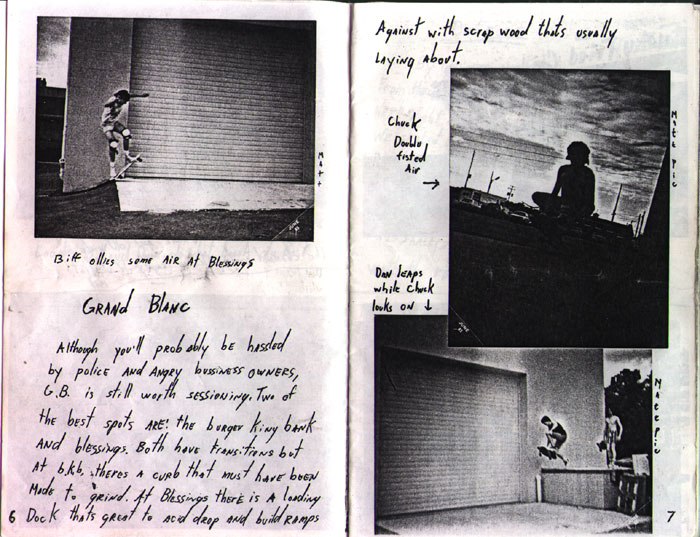 Matt
Biff ollies some Air At Blessings
Grand Blanc
Although you'll probably be hassled
by police and Angry bussiness owners,
G.B. is still worth sessioning. Two of
the best spots ARE: the burger King bank
and blessings. Both have transitions but
At b.k.b. theres a curb that must have been
Made to grind. At Blessings there is a loading
Dock thats great to acid drop and build ramps
6
Against with scrap wood thats usually
laying about.
Chuck
Double
fisted
Air
Matt pic
Dan leaps
while Chuck
looks on
Matt pic
7